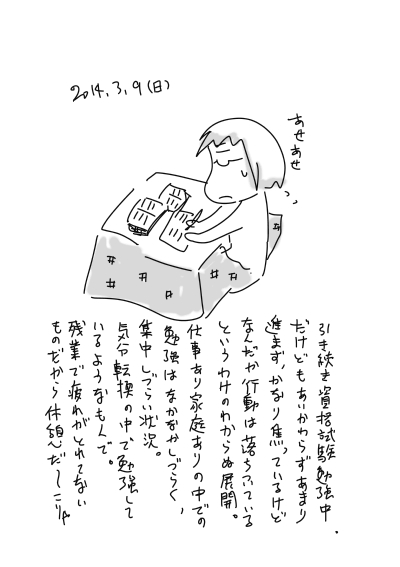 2014.3.9(日)
あせあせ
引き続き資格試験勉強中.
だけどもあいかわらずあまり
進まず、かなり焦っているけど
なんだか行動は落ちついている
というわけのわからぬ展開。
仕事あり家庭ありの中での
勉強はなかなかしづらく、
集中しづらい状況。
気分転換の中で勉強して
いるようなもんで。
残業で疲れがとれてない
ものだから休憩だーこりゃ